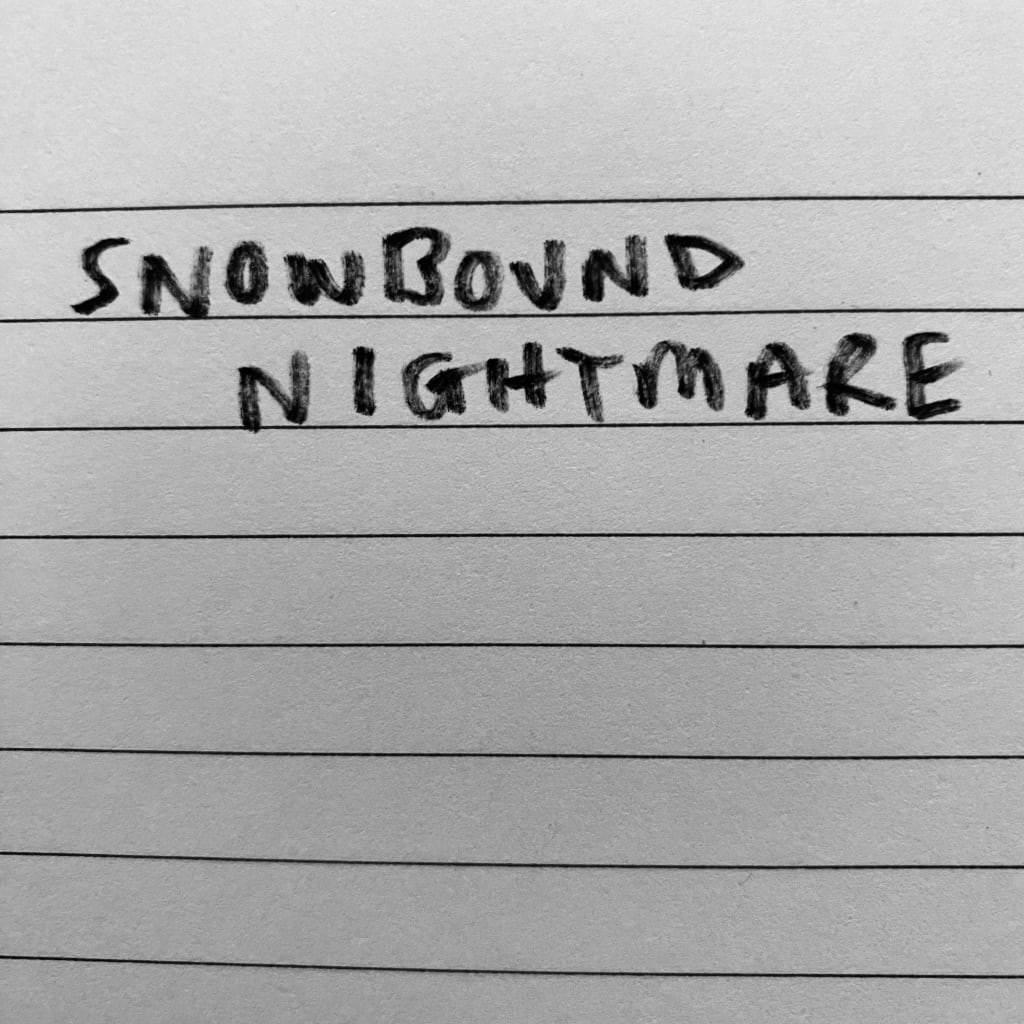 SNOWBOUND
NIGHTMARE